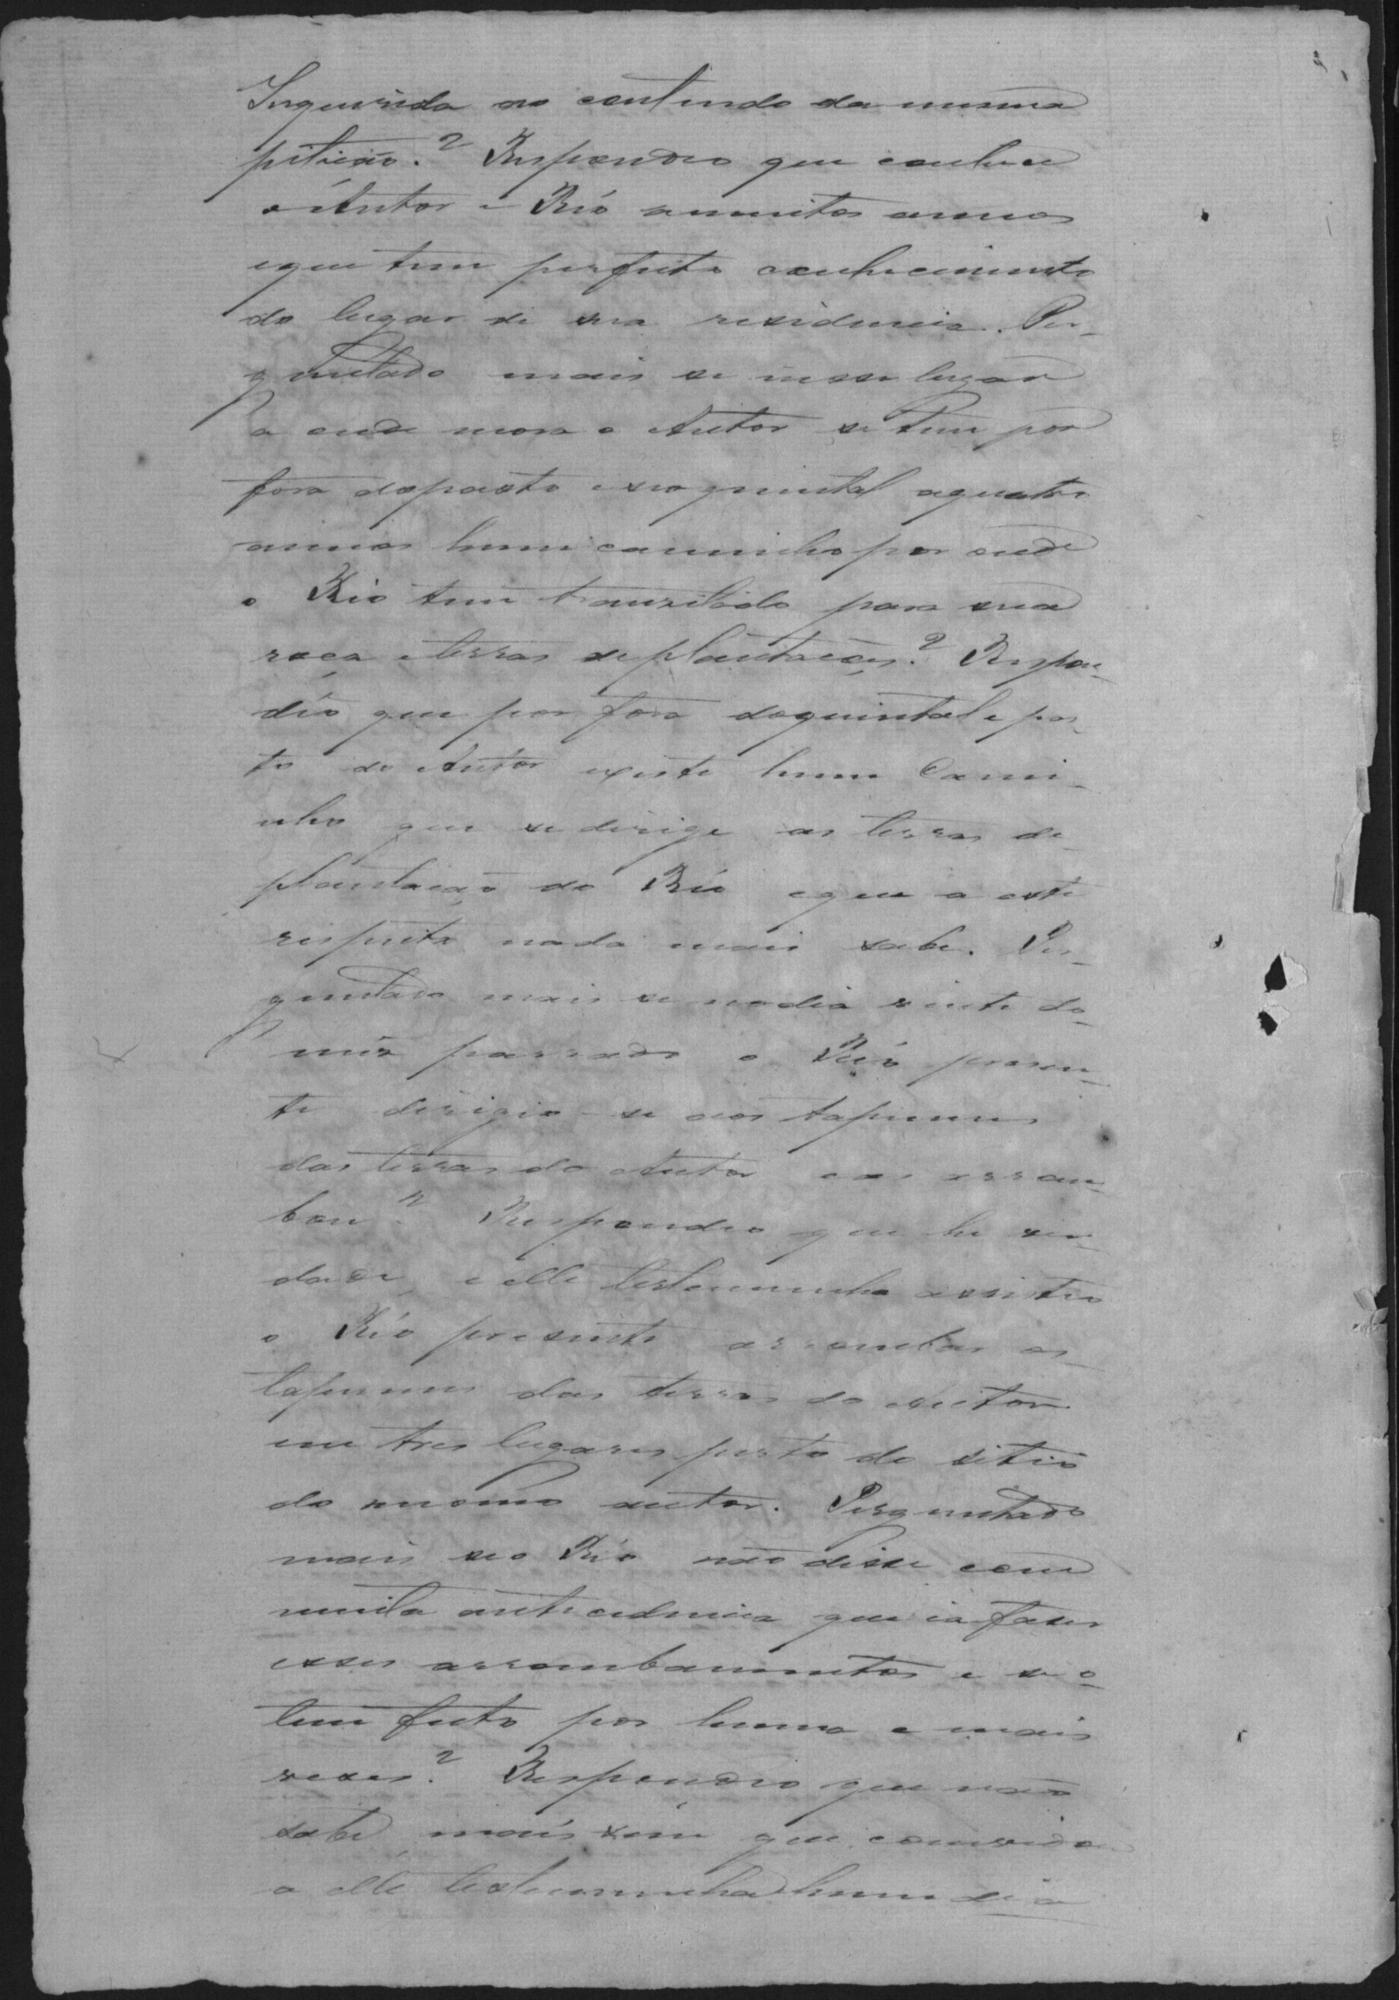 Inquerida no contendo da mesma
pitição.? Respondeo que conhece
o Autor e Réo a muitos annos
e que tem perfeito conhecimento
do lugar de sua residencia. Per-
guntado mais se nesse lugar
a onde mora o Autor se tem por
fora do pasto e seo quintal a quatro
annos hum caminho por onde
o Réo tem tranzitado para sua
roça e terras de plantações.? Respon-
dêo que por fora do quintal e pas-
to do Autor existe hum Cami-
nho que se dirige as terras de
plantação do Réo e que a este
respeito nada mais sabe. Per-
guntado mais se no dia vinte do
mês passado o Réo presen-
te dirigio-se aos tapumes
das terras do Autor e os arrom-
bou? Respondeo que he ver-
dade, e elle testemunha assistio
o Réo presente arrombar os
tapumes das terras do Autor
em tres lugares perto do sitio
do mesmo autor. Perguntado
mais se o Réo não disse com
muita antecedencia que ia fazer
esses arrombamentos e se o
tem feito por huma e mais
vezes.? Respondeo que não
sabe, mais sim que convidou
a elle testemunha hum dia